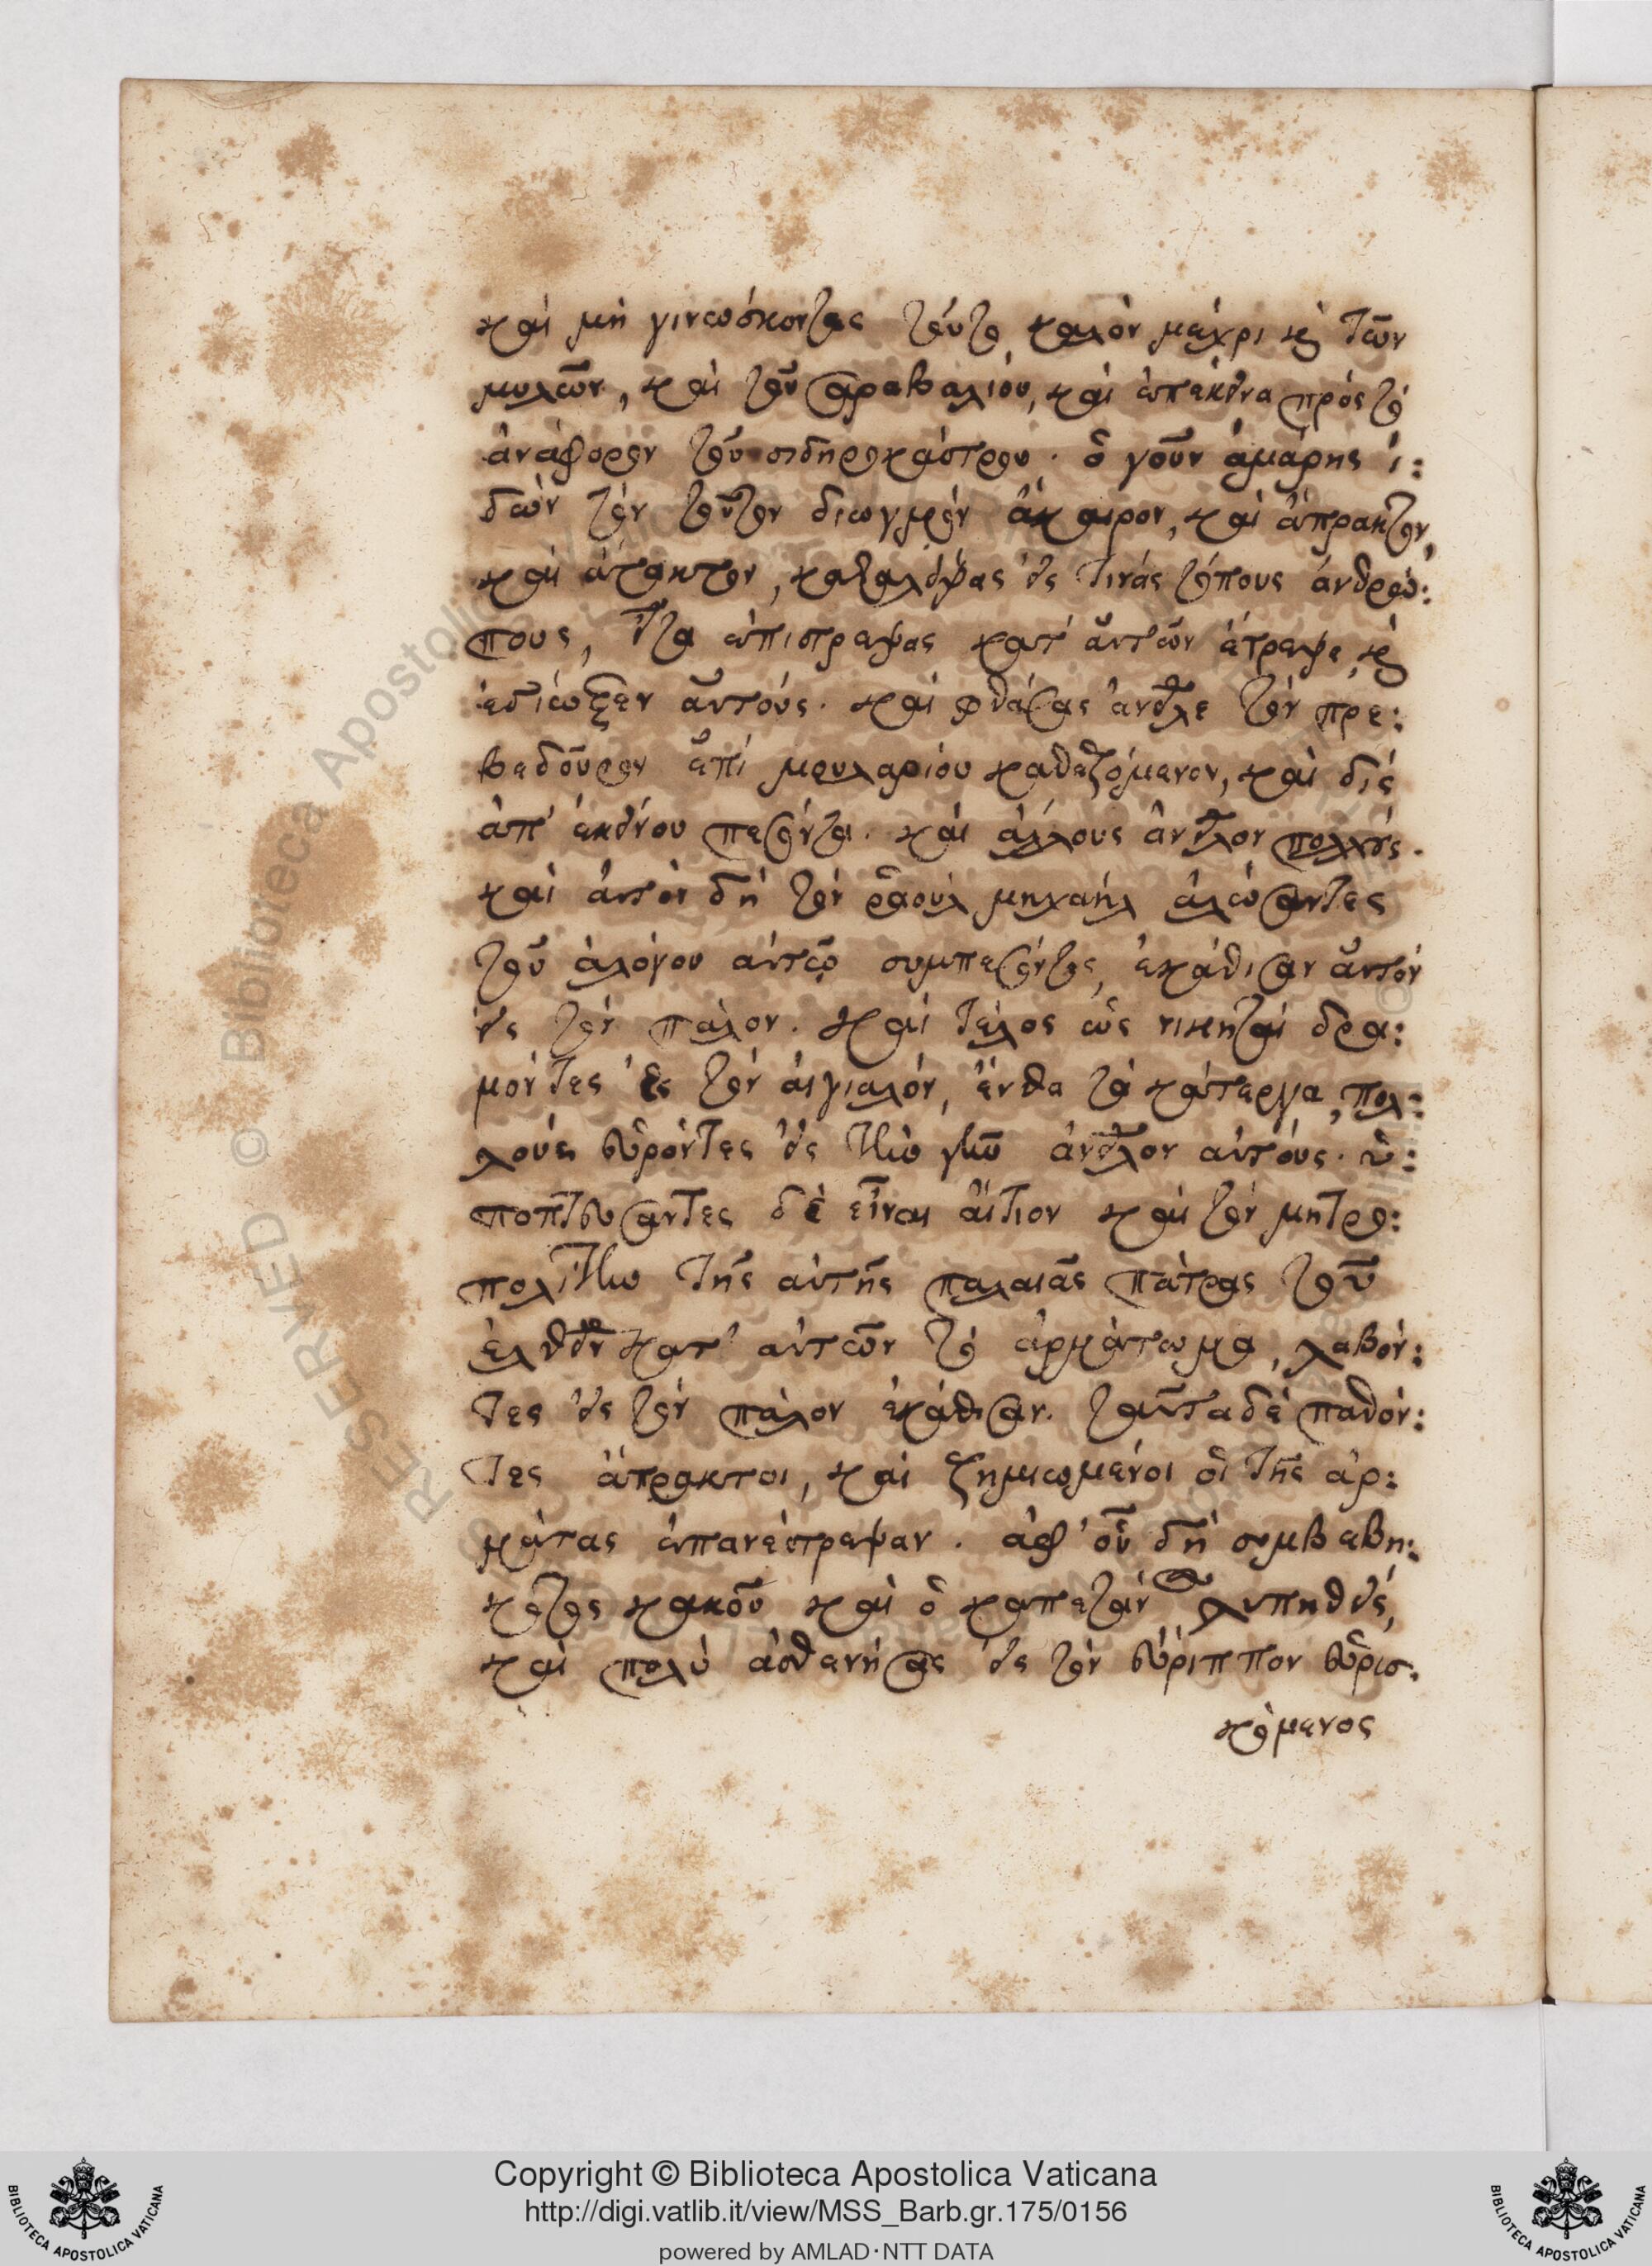 καὶ μὴ γινώσκοντες τοῦτο καλὸν μέχρι καὶ τῶν
μυλῶν, καὶ τοῦ σαραβαλίου, καὶ ἐπέκεινα πρὸς τὸ
ἀνάφορον τοῦ σιδηροκάστρου. ὁ γοῦν ἀμάρης ἰ:
δὼν τὸν τοῦτον διωγμὸν ἄκαιρον, καὶ ἄπρακτον,
καὶ ἄτακτον, καταλείψας εἰς τινὰς τόπους ἀνθρώ:
πους, εἶτα ἐπιστρέψας κατ' αὐτῶν ἔτρεψε, καὶ
ἐδίωξεν αὐτούς. καὶ φθάσας ἀνεῖλε τὸν πρε:
βεδοῦρον ἐπὶ μουλαρίου καθεζόμενον, καὶ δὶς
ἀπ' ἐκείνου πεσόντα. καὶ ἄλλους ἀνεῖλον πολλούς.
καὶ αὐτὸν δὴ τὸν ῥαοὺλ μηχαὴλ ἁλώσαντες
τοῦ ἀλόγου αὐτῷ συμπεσόντος, ἐκάθισαν αὐτὸν
εἰς τὸν πάλον. καὶ τέλος ὡς νικηταὶ δρα:
μόντες εἰς τὸν αἰγιαλόν, ἔνθα τὰ κάτεργα, πολ:
λοὺς εὑρόντες εἰς τὴν γῆν ἀνεῖλον αὐτούς. ὑ:
ποπτεύσαντες δὲ εἶναι αἴτιον καὶ τὸν μητρο:
πολίτην τῆς αὐτῆς παλαιᾶς πάτρας τοῦ
ἐλθεῖν κατ' αὐτῶν τὸ ἀρμάτωμα, λαβόν:
τες εἰς τὸν πάλον ἐκάθισαν. ταῦτα δὲ παθόν:
τες ἄπρακτοι, καὶ ζημιωμένοι οἱ τῆς ἀρ:
μάτας ἐπανέστρεψαν. ἀφ' οὗ δὴ συμβεβη:
κότος κακοῦ καὶ ὁ καπετάνος λυπηθείς,
καὶ πολὺ ἀσθενήσας εἰς τὸν εὔριππον εὑρισ:
κόμενος
Copyright © Biblioteca Apostolica Vaticana
http://digi.vatlib.it/view/MSS_Barb.gr.175/0156
powered by AMLAD·NTT DATA